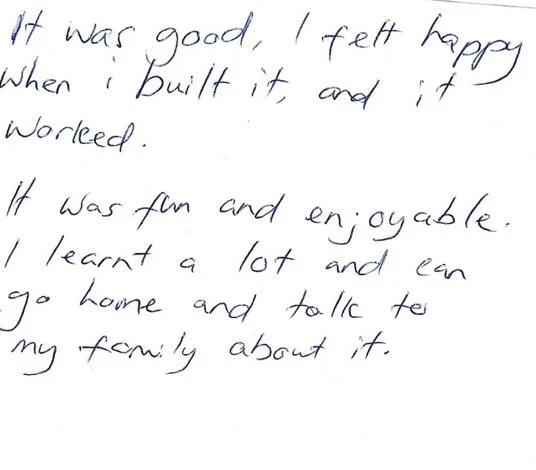 It was good, I felt happy
when i built it, and it
worked.
It was fun and enjoyable.
I learnt a lot and can
go home and talk to
my family about it.